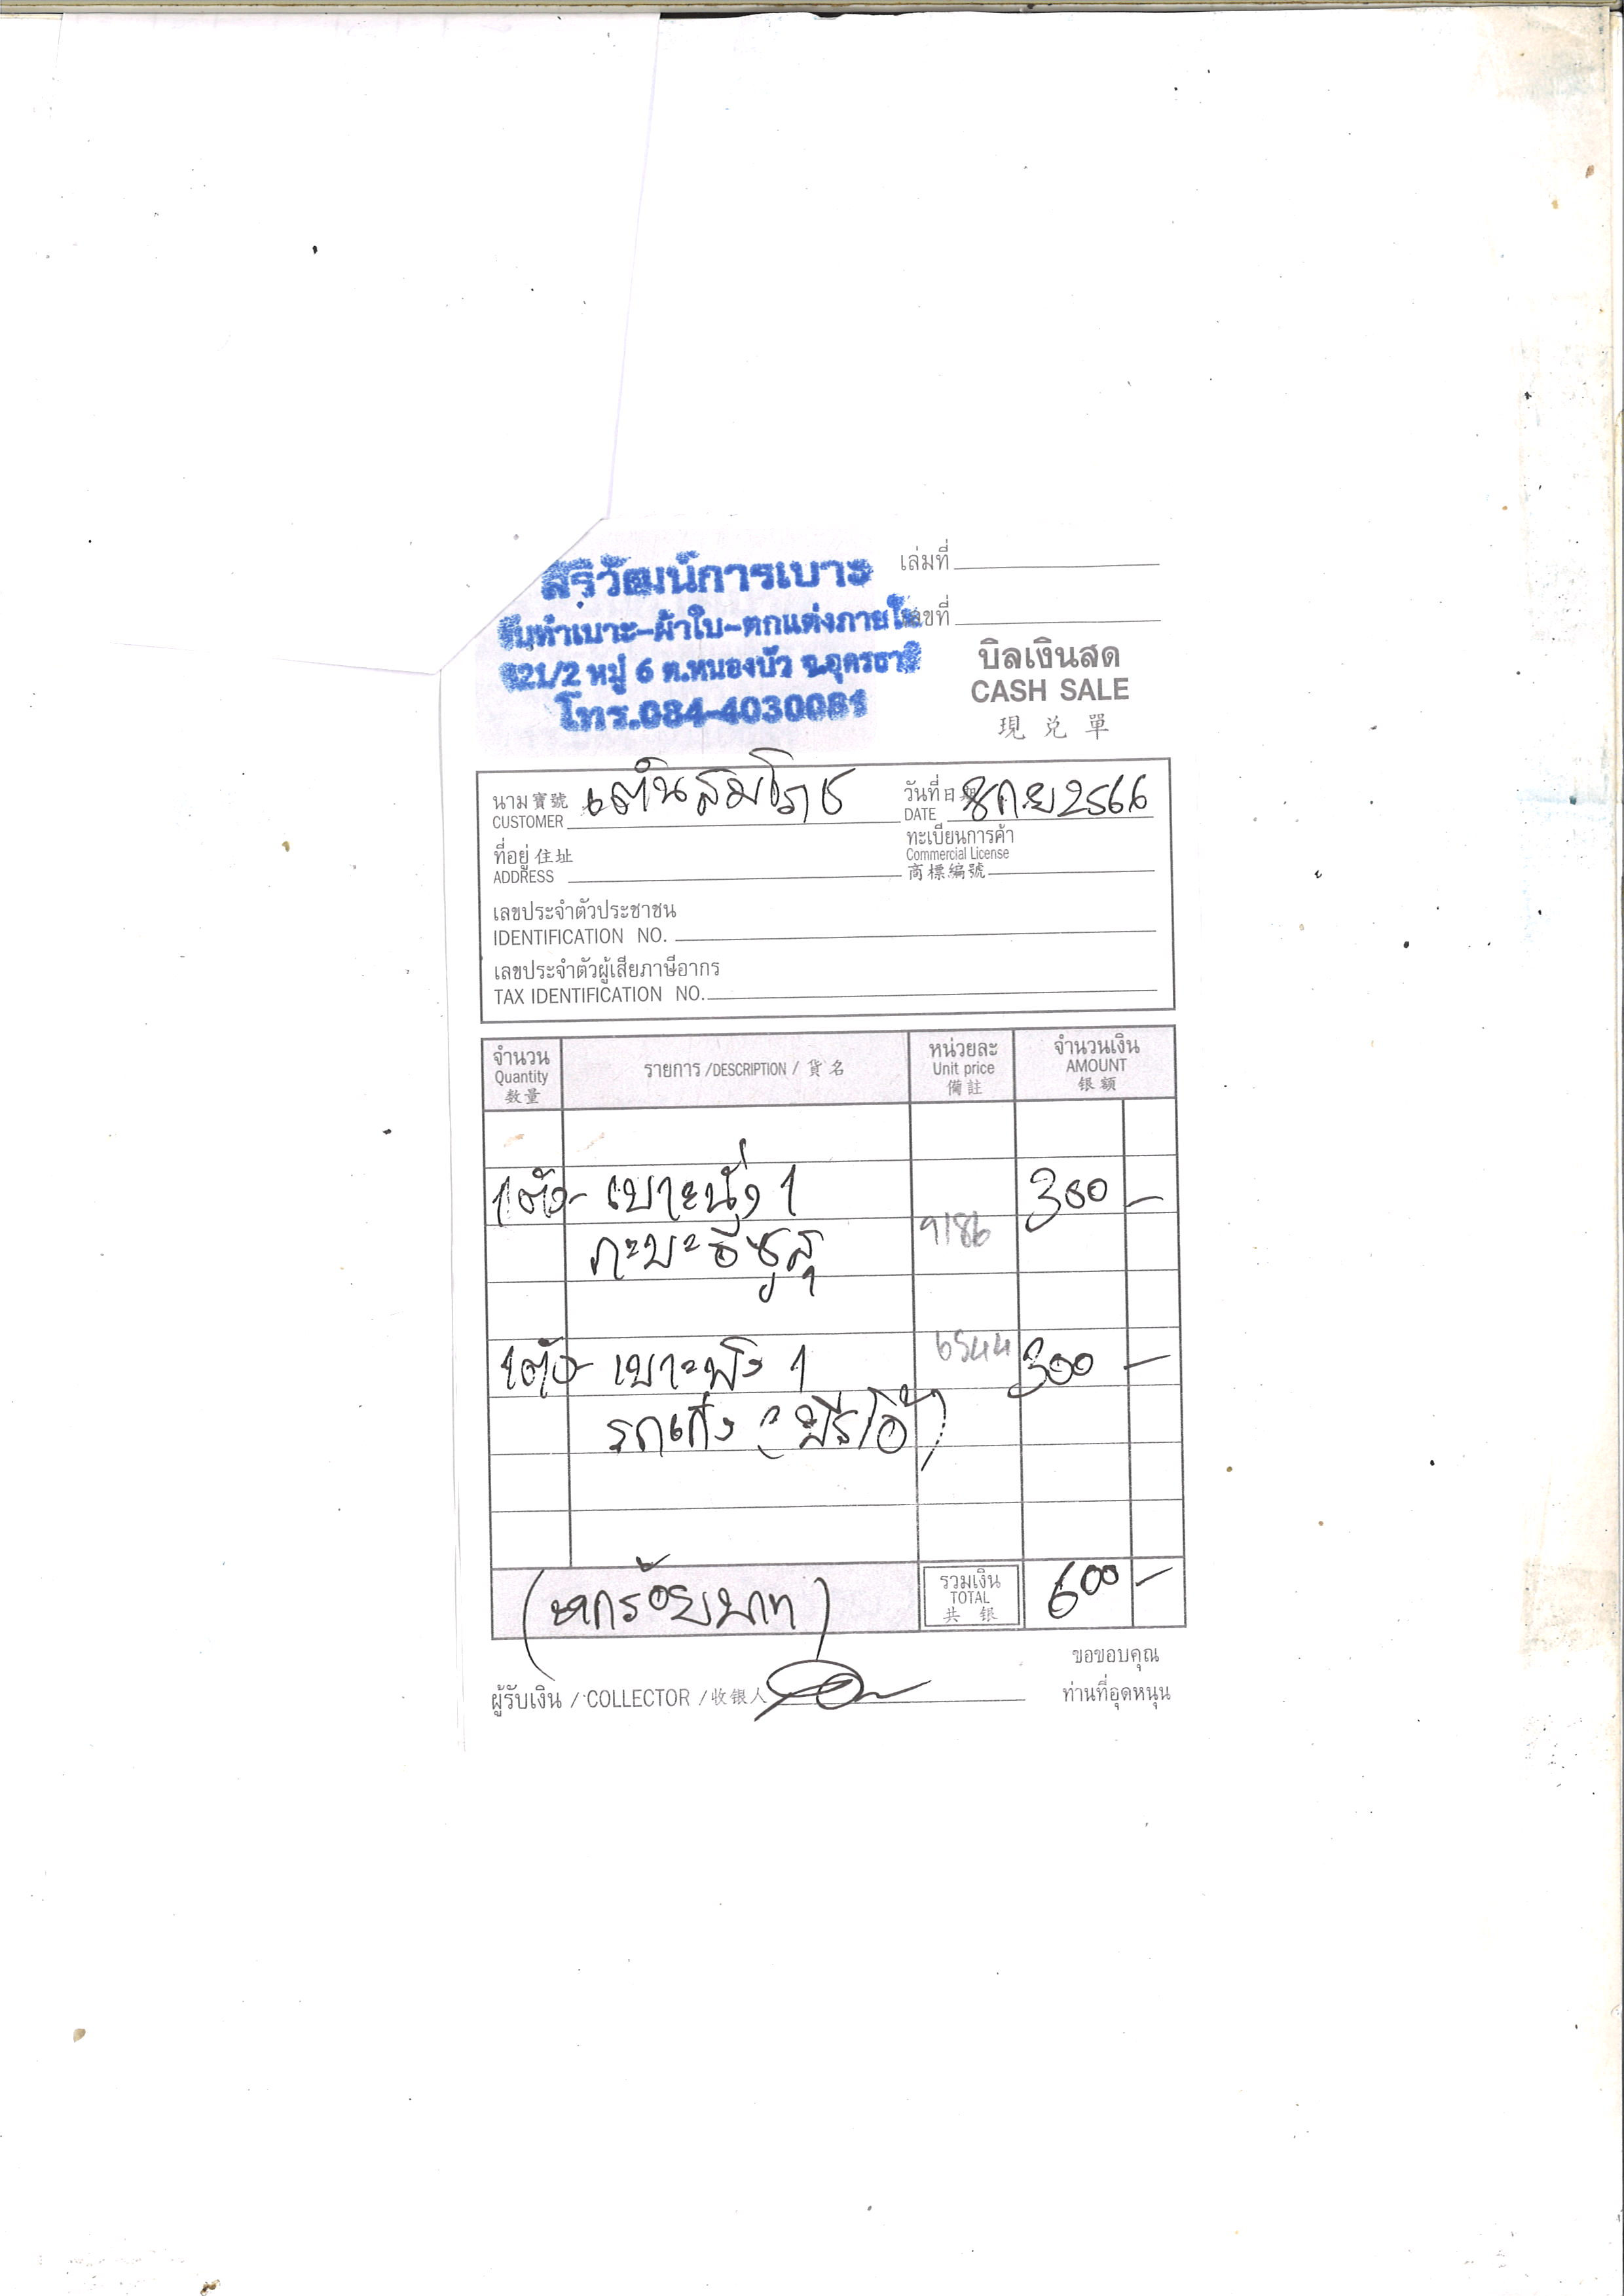 สิริวัฒน์การเบาะ
รับทำเบาะ-ผ้าใบ-ตกแต่งภายใน
621/2 หมู่ 6 ต.หนองบัว จ.อุดรธานี
โทร.084-4030081
เล่มที่
เลขที่
บิลเงินสด
CASH SALE
現 兌 單
นาม 寶號
CUSTOMER
วันที่ 日期 8 กย 2566
DATE
ที่อยู่ 住址
ADDRESS
ทะเบียนการค้า
Commercial License
商標編號
เลขประจำตัวประชาชน
IDENTIFICATION NO.
เลขประจำตัวผู้เสียภาษีอากร
TAX IDENTIFICATION NO.
จำนวน
Quantity
数量
รายการ /DESCRIPTION / 貨名
หน่วยละ
Unit price
備註
จำนวนเงิน
AMOUNT
银額
1 ตัว - เบาะนั่ง 1 300 -
กะบะอีซูสุ 9186
1 ตัว - เบาะพิง 1 6544 300 -
รถเก๋ง
(หกร้อยบาท)
รวมเงิน
TOTAL
共 银
600 -
ผู้รับเงิน / COLLECTOR / 收银人
ขอขอบคุณ
ท่านที่อุดหนุน